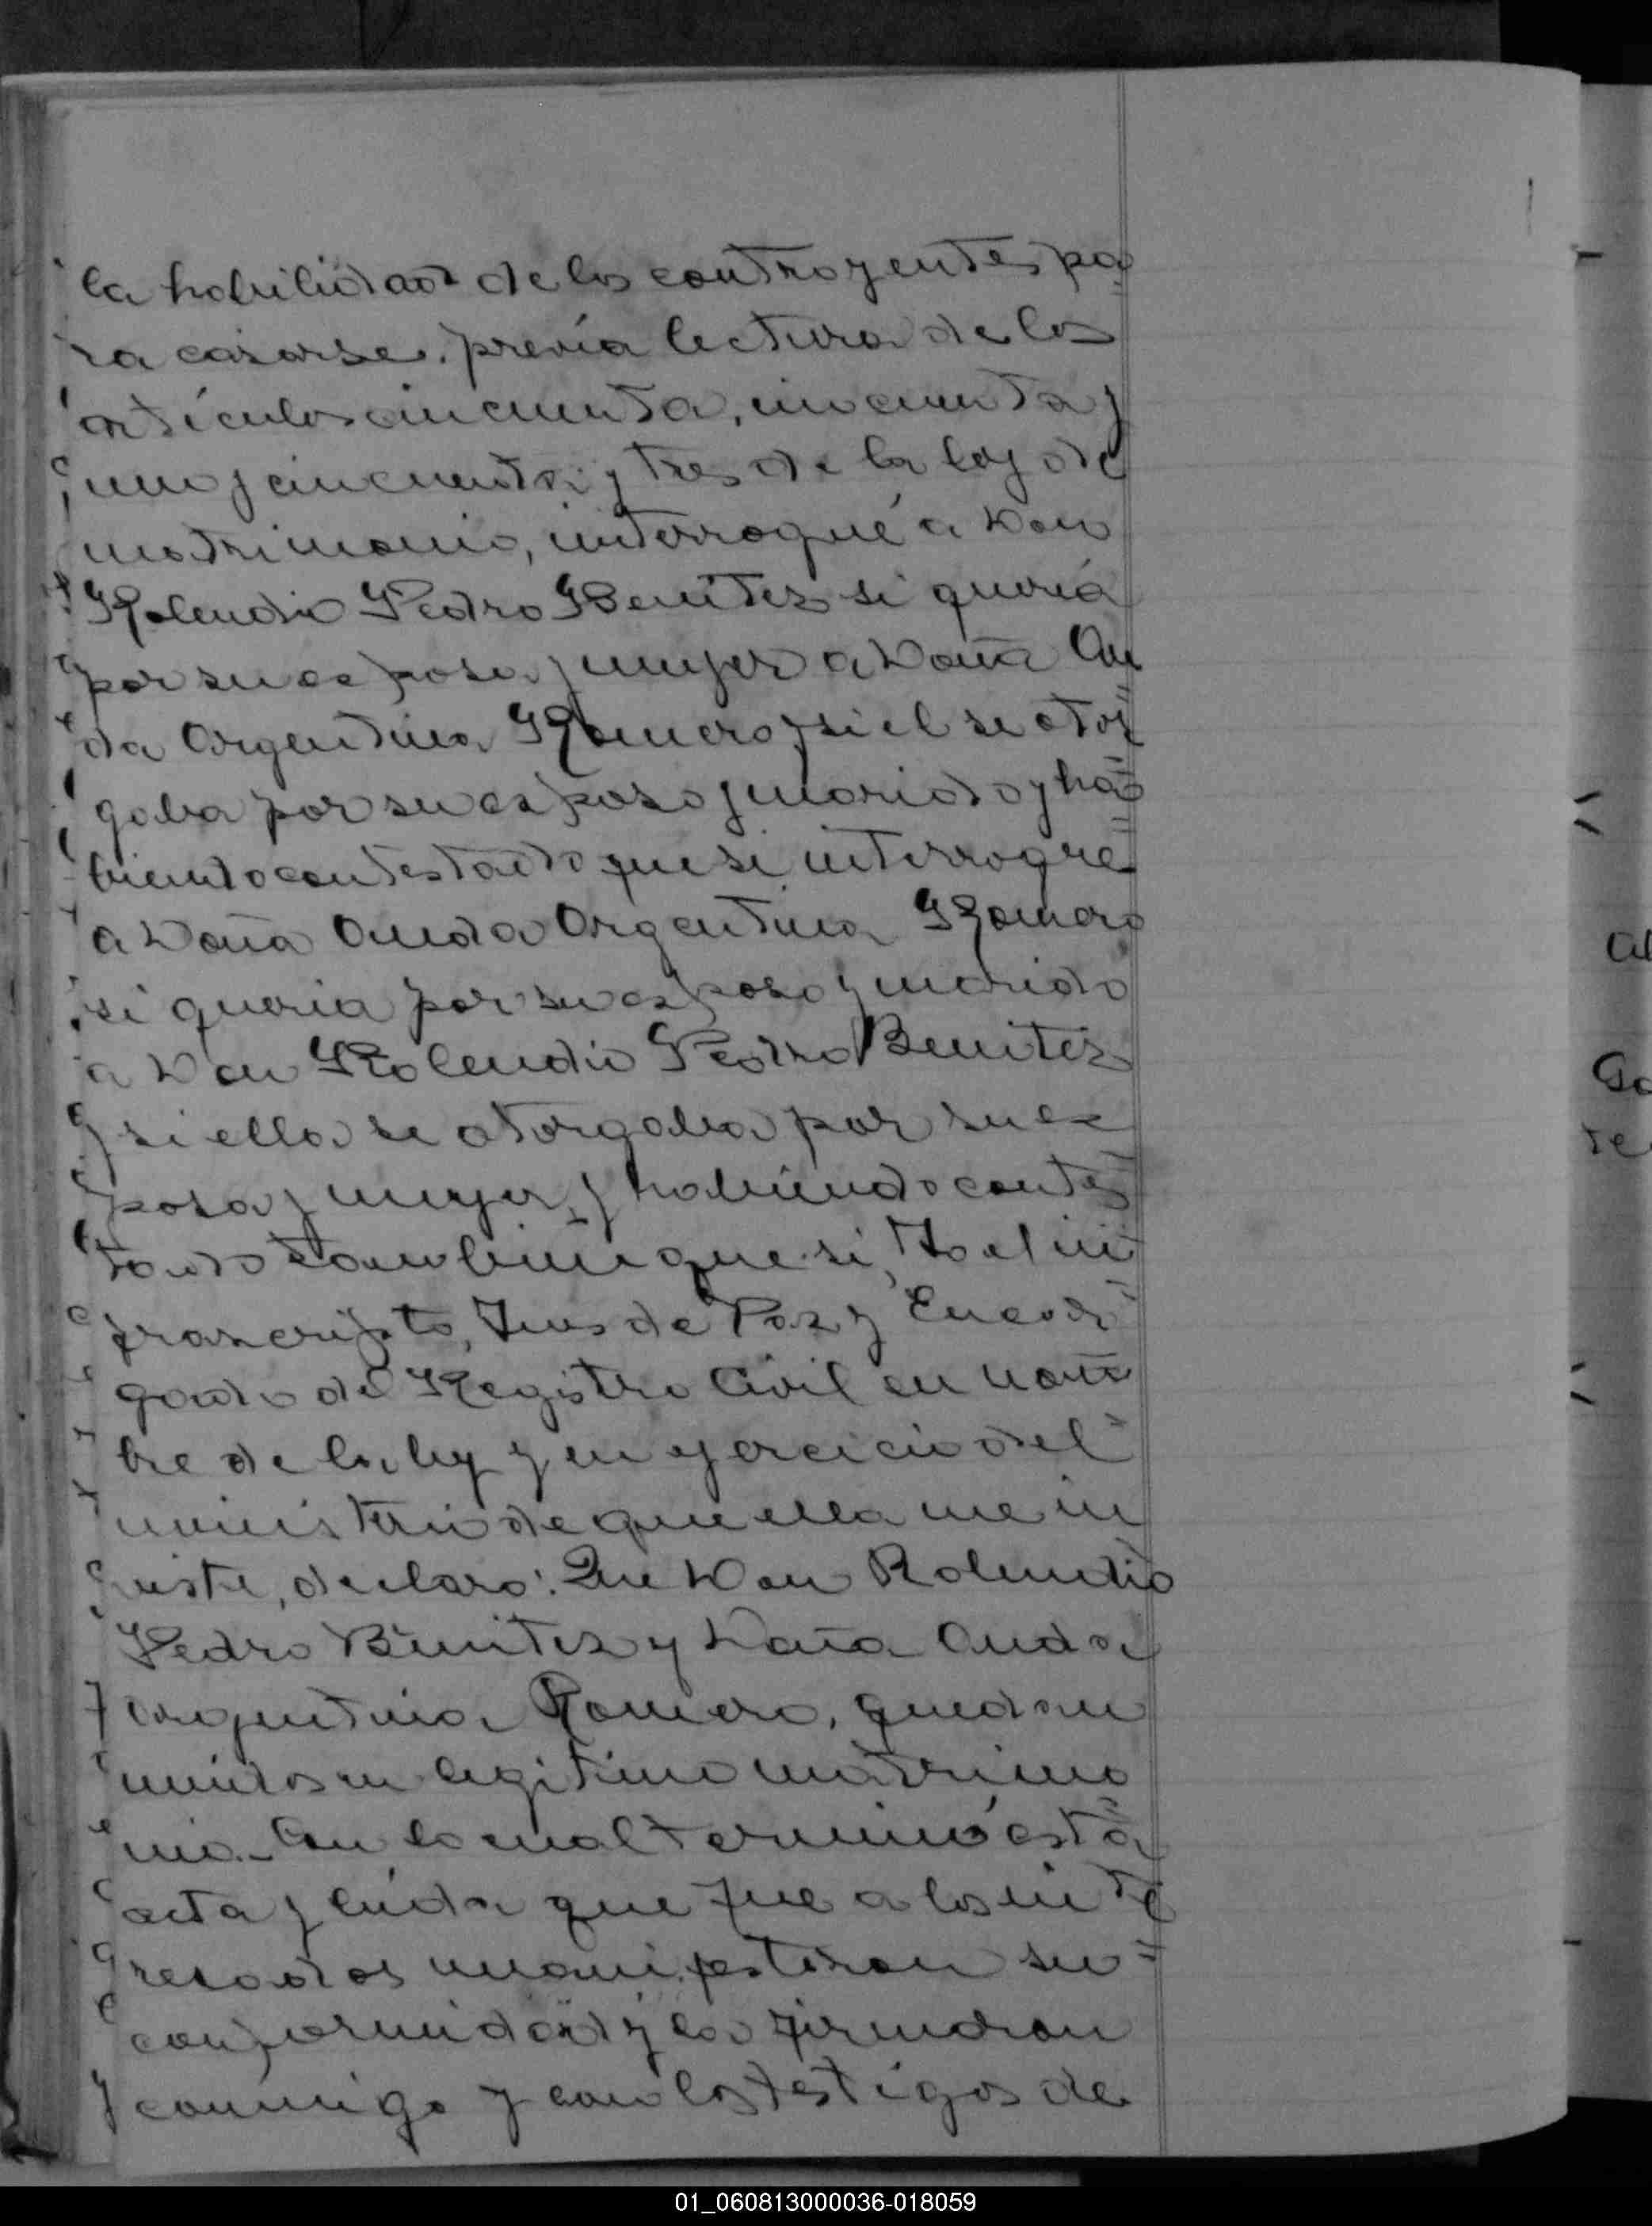 la habilidad de los contrayentes pa=
ra casarse. previa lectura de los
artículos cincuenta, cincuenta y
uno y cincuenta y tres de la ley de
matrimonio, interrogué a Don
Rolendio Pedro Benitez si queria
por su esposa y mujer a Doña An
da Argentina Romero y si el se otor=
gaba por su esposo y marido y ha=
biendo contestado que si interrogue
a Doña Anda Argentina Romero
si queria por su esposo y marido
a Don Rolendio Pedro Benitez
y si ella se otorgaba por su es
posa y mujer, y habiendo contes=
tado tambien que si, Yo el in=
frascripto, Juez de Paz y Encar=
gado del Registro Civil en nom=
bre de la ley y en ejercicio del
ministerio de que ella me in
viste, declaro: Que Don Rolendio
Pedro Benitez y Doña Anda
Argentina Romero, quedan
unidos en legitimo matrimo=
nio.- Con lo cual terminó esta
acta y leída que fue a los inte=
resados manifestaron su
conformidad y la firmaron
conmigo y con los testigos de
al
Ga
te
01_060813000036-018059